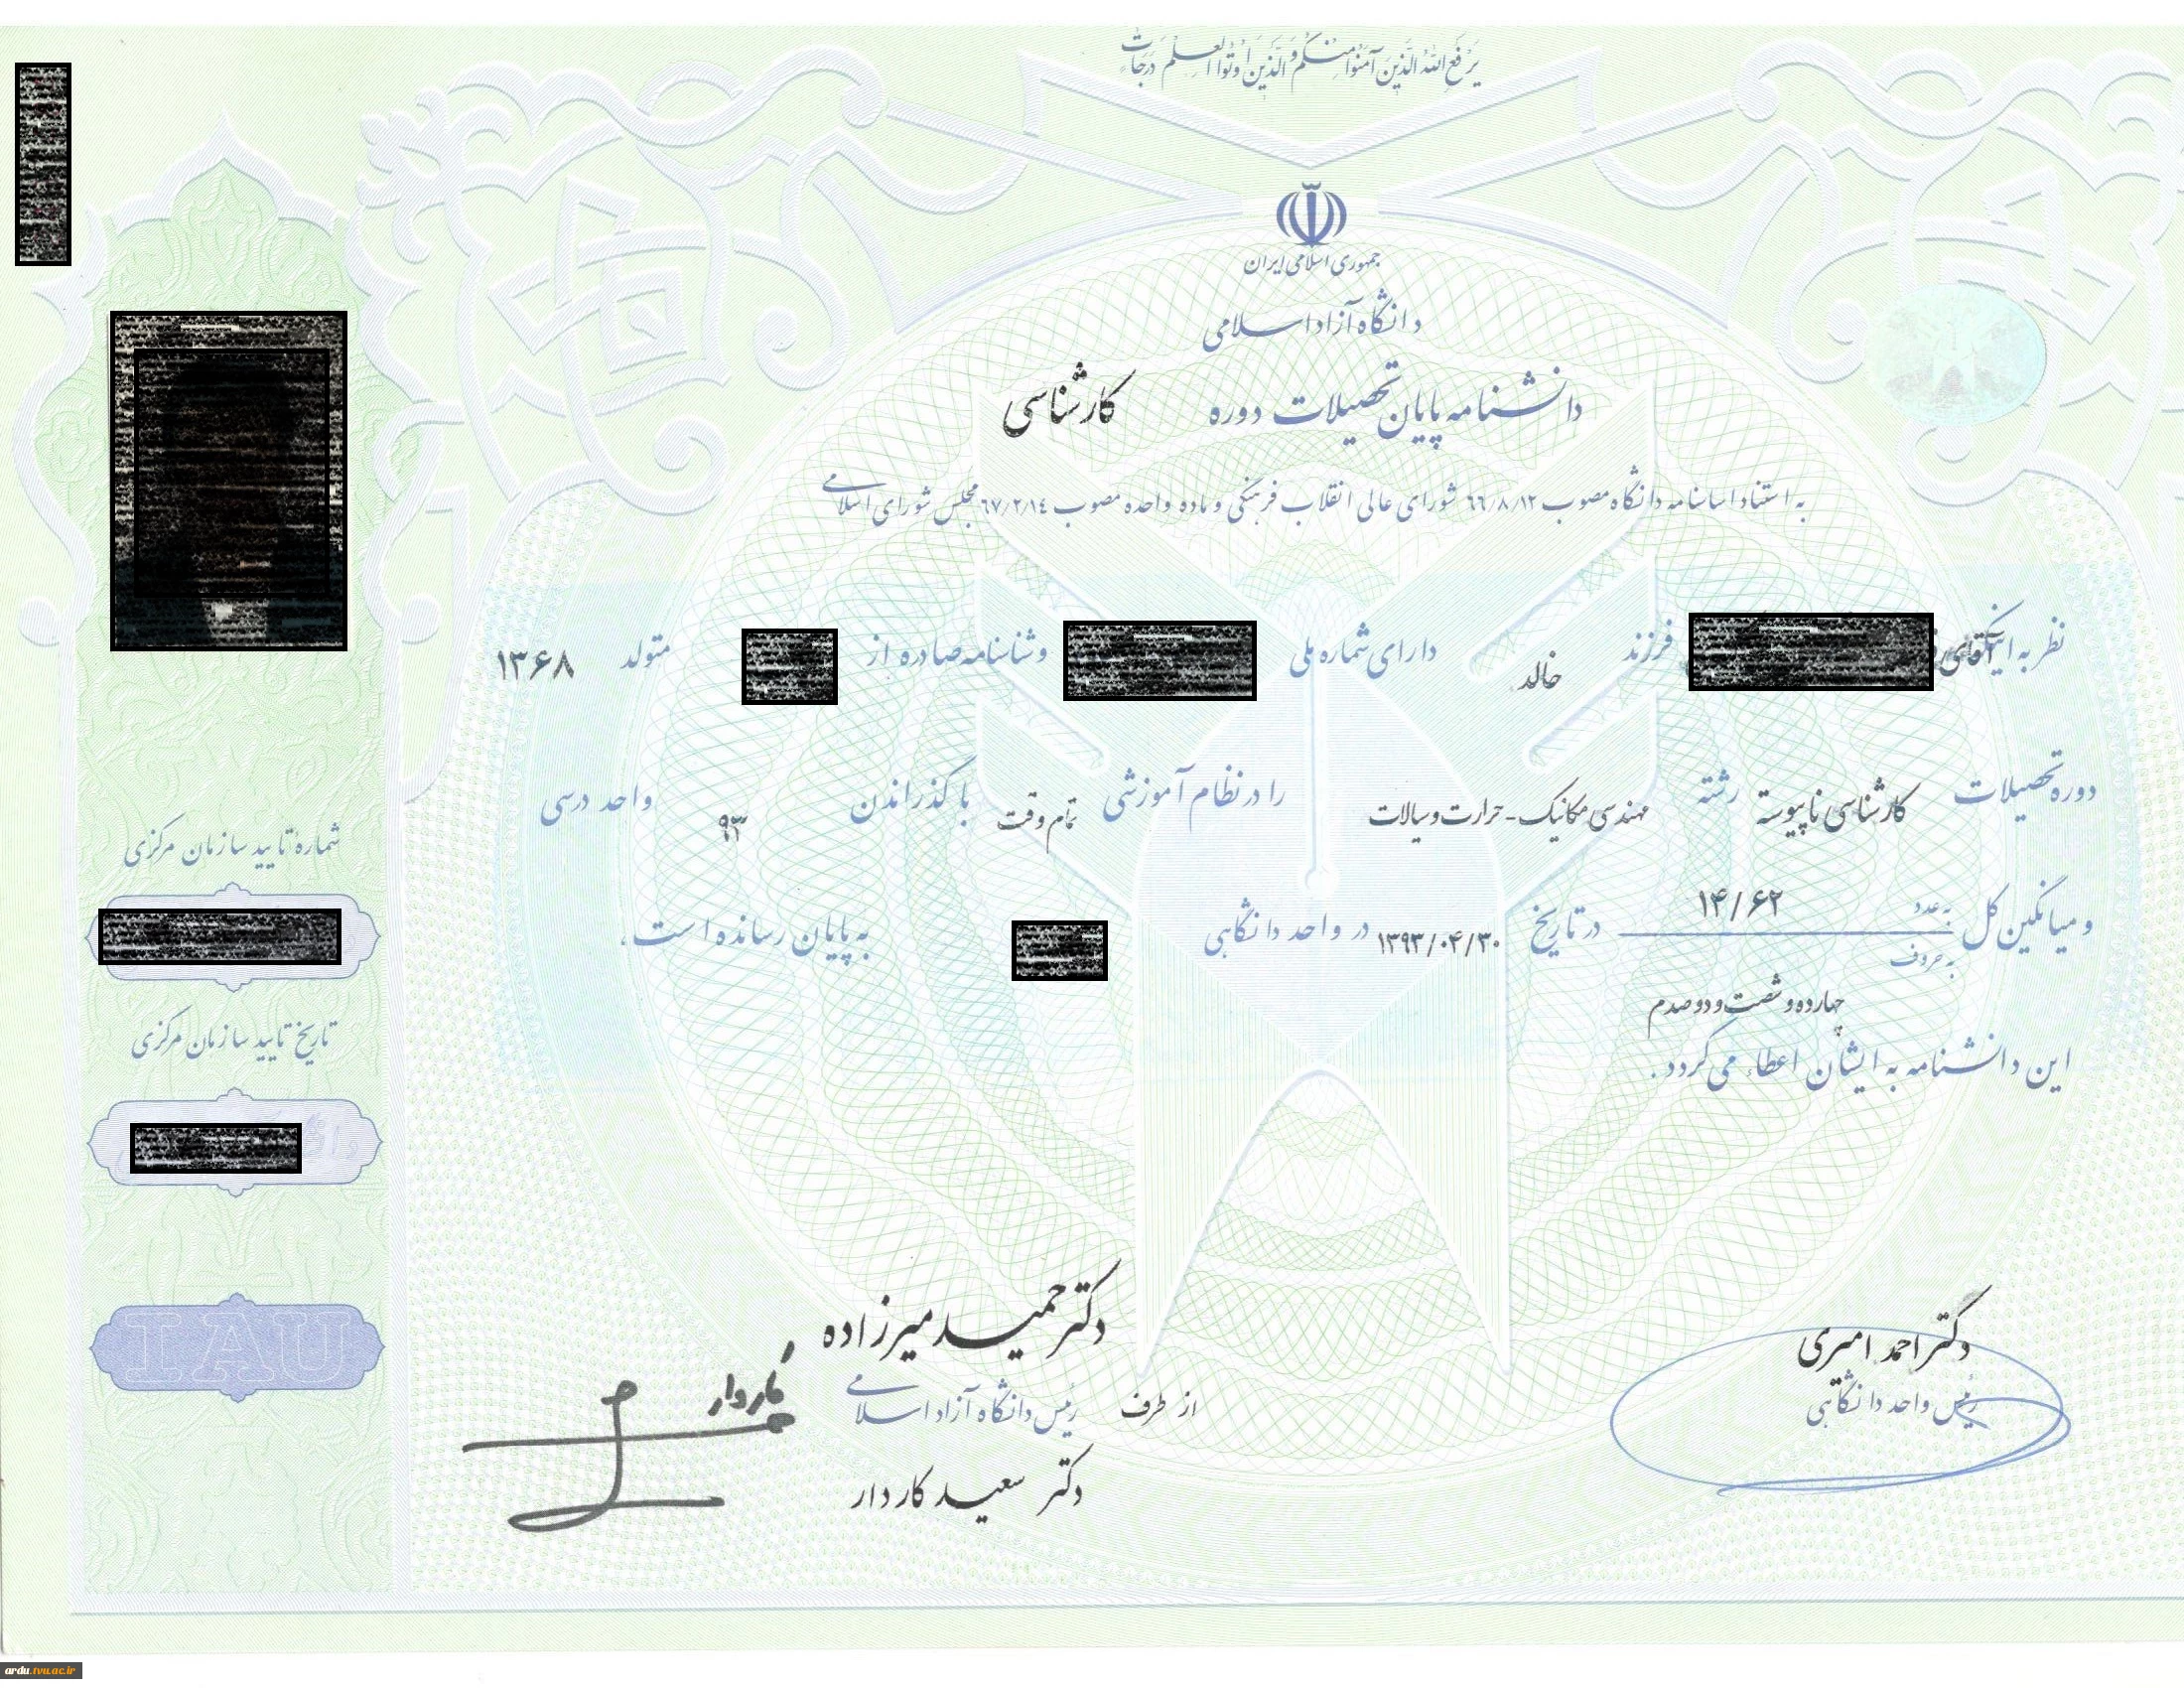 یَرْفَعِ اللهُ الَّذینَ آمَنُوا مِنْکُمْ وَ الَّذینَ اُوتُوا الْعِلْمَ دَرَجاتٍ
جمهوری اسلامی ایران
دانشگاه آزاد اسلامی
دانشنامه پایان تحصیلات دوره کارشناسی
به استناد اساسنامه دانشگاه مصوب ٦٦/٨/١٢ شورای عالی انقلاب فرهنگی و ماده واحده مصوب ٦٧/٢/١٤ مجلس شورای اسلامی
نظر به اینکه آقای فرزند خالد دارای شماره ملی و شناسنامه صادره از متولد ۱۳۶۸
دوره تحصیلات کارشناسی ناپیوسته رشته مهندسی مکانیک - حرارت و سیالات را در نظام آموزشی تمام وقت با گذراندن ۹۳ واحد درسی
و میانگین کل به عدد ۱۴/۶۲ در تاریخ ۱۳۹۳/۰۴/۳۰ در واحد دانشگاهی به پایان رسانده است.
به حروف چهارده و شصت و دو صدم
این دانشنامه به ایشان اعطاء می گردد.
شماره تایید سازمان مرکزی
تاریخ تایید سازمان مرکزی
IAU
دکتر احمد امیری
رئیس واحد دانشگاهی
دکتر حمید میرزاده
از طرف رئیس دانشگاه آزاد اسلامی
دکتر سعید کاردار
ardu.tvu.ac.ir